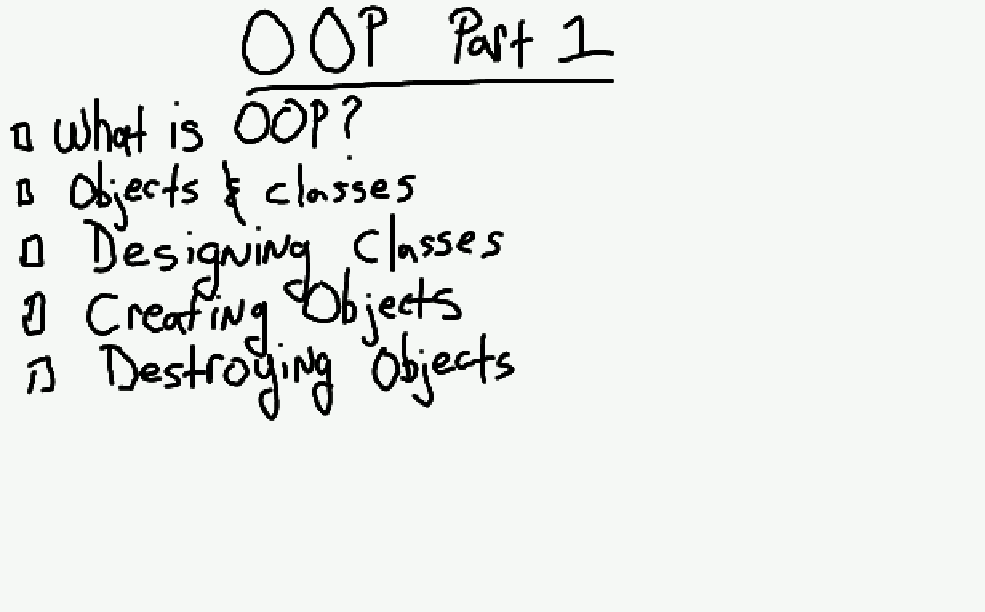 OOP Part 1
What is OOP?
Objects & classes
Designing Classes
Creating Objects
Destroying Objects